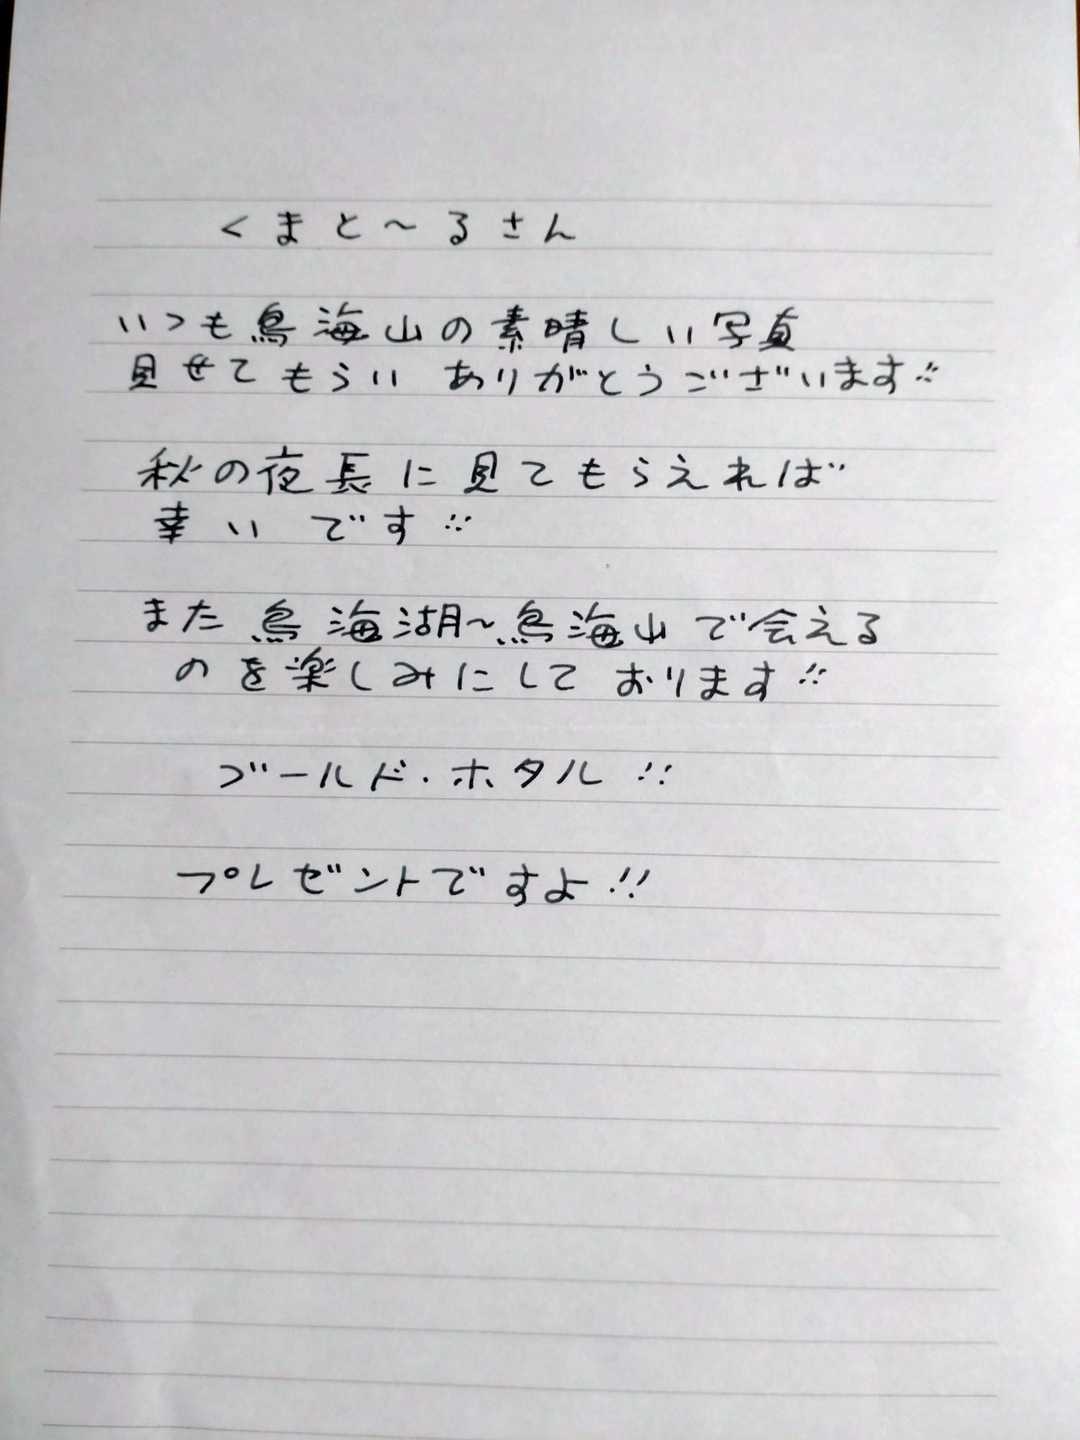 くまと～るさん
いつも鳥海山の素晴しい写真
見せてもらい ありがとうございます!!
秋の夜長に見てもらえれば
幸いです!!
また鳥海湖～鳥海山で会える
のを楽しみにしております!!
ゴールド・ホタル!!
プレゼントですよ!!